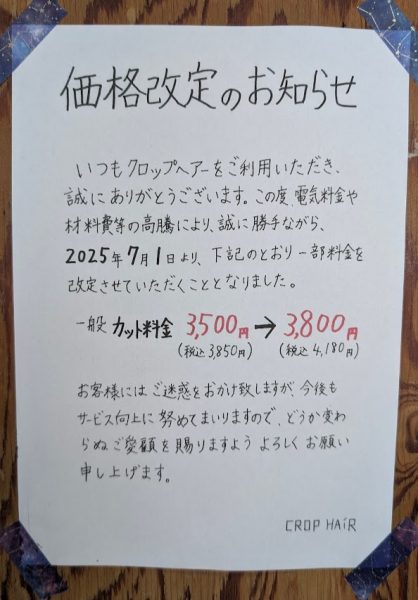 価格改定のお知らせ
いつもクロップヘアーをご利用いただき、
誠にありがとうございます。この度、電気料金や
材料費等の高騰により、誠に勝手ながら、
2025年7月1日より、下記のとおり一部料金を
改定させていただくこととなりました。
一般 カット料金 3,500円→3,800円
(税込3,850円) (税込4,180円)
お客様にはご迷惑をおかけ致しますが、今後も
サービス向上に努めてまいりますので、どうか変わ
らぬご愛顧を賜りますようよろしくお願い
申し上げます。
CROP HAiR